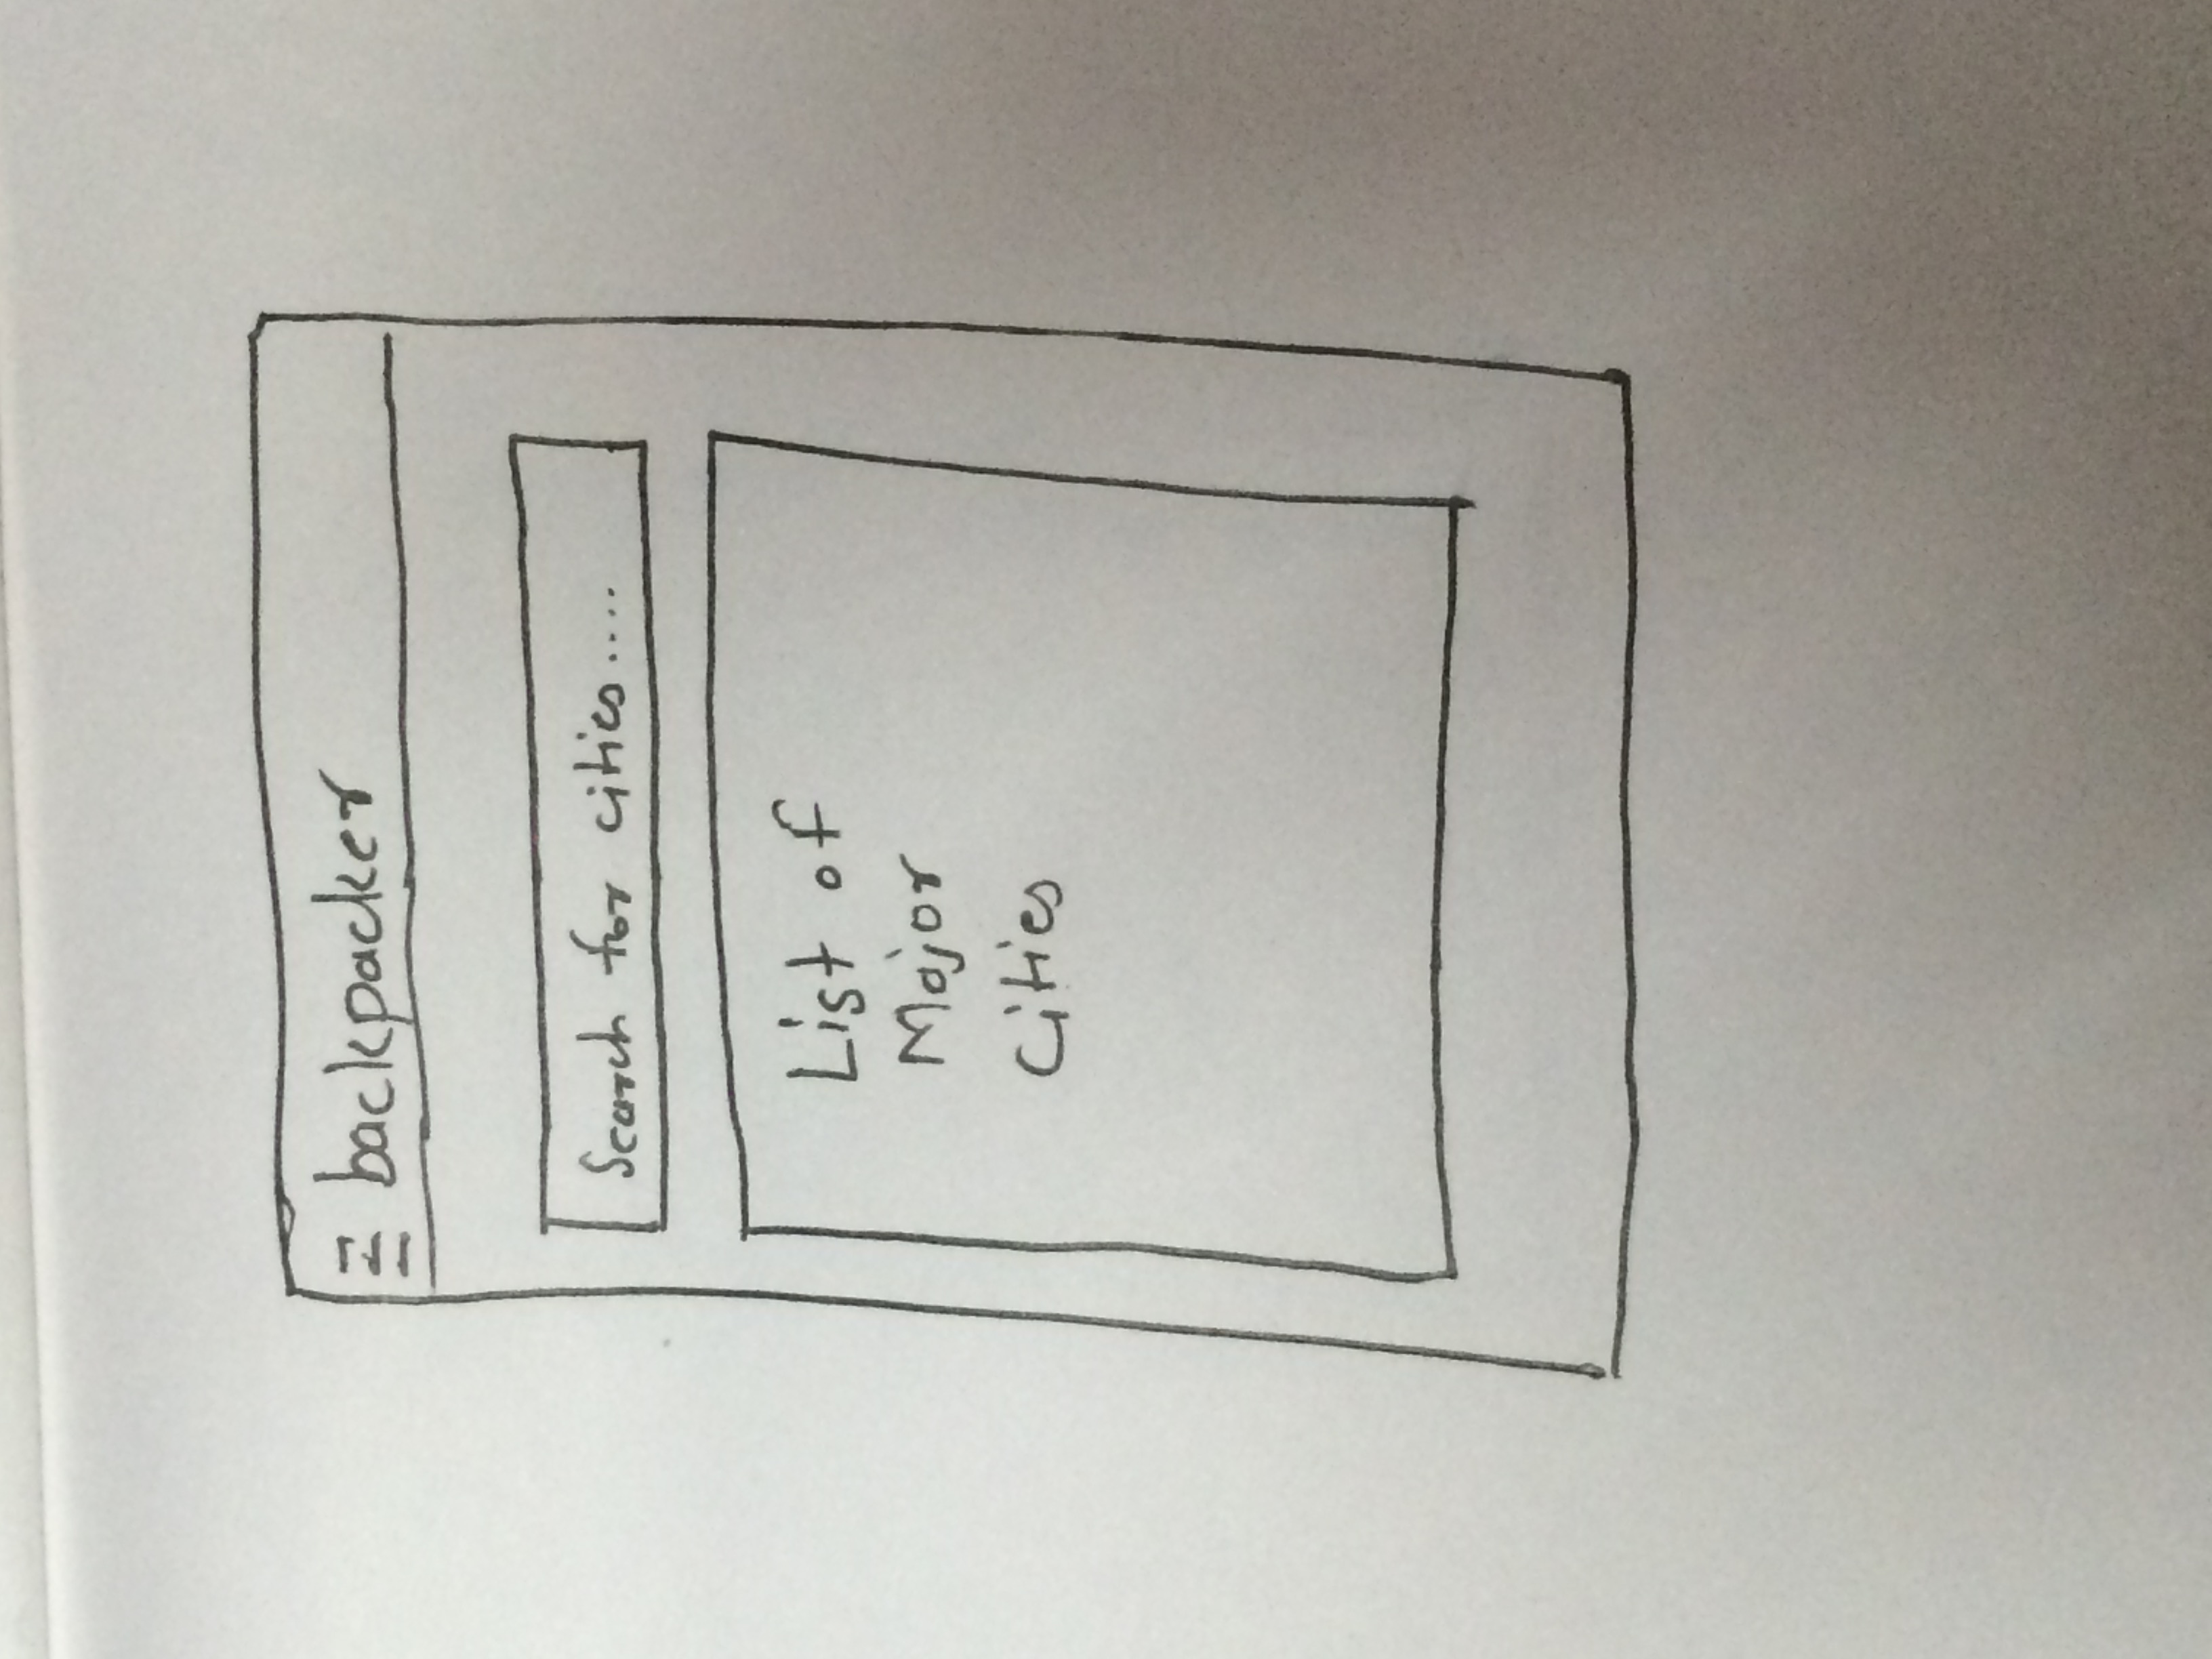 backpacker
Search for cities....
List of
Major
Cities